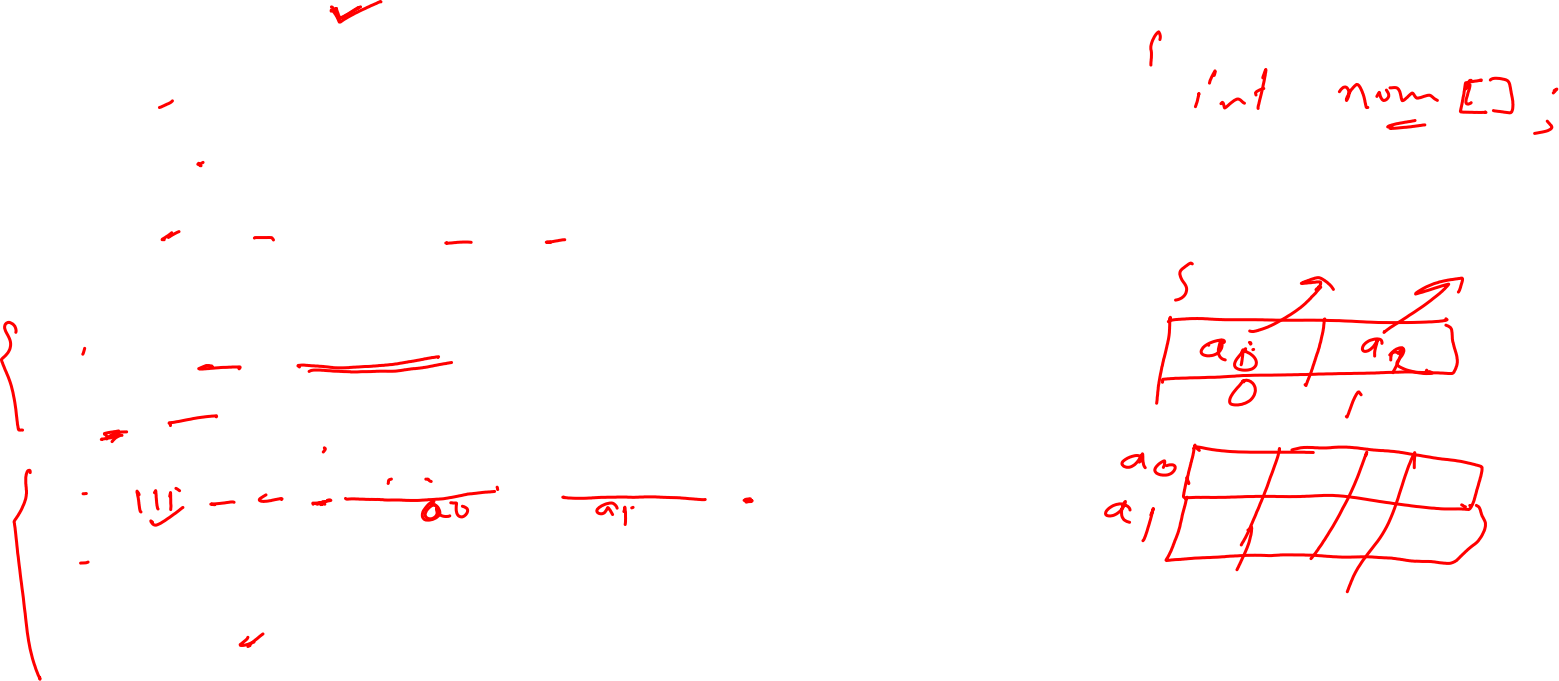 int nom [ ] ;
a0 a1
0 1
a0
a1
a0 a1